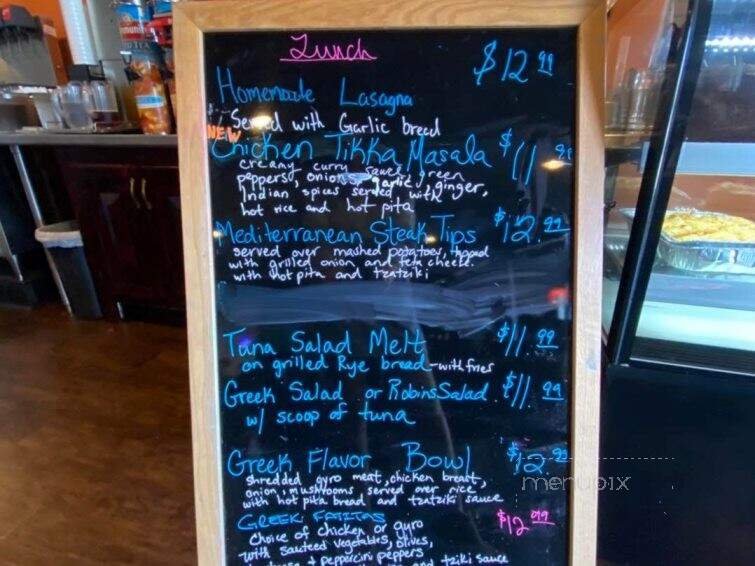 Lunch
$12.99
Homemade Lasagna
Served with Garlic bread
NEW
Chicken Tikka Masala $11.99
creamy curry sauce, green
peppers, onions, garlic, ginger,
Indian spices served with
hot rice and hot pita
Mediterranean Steak Tips $12.99
served over mashed potatoes, topped
with grilled onion and feta cheese.
with hot pita and tzatziki
Tuna Salad Melt $11.99
on grilled Rye bread - with fries
Greek Salad or Robins Salad $11.99
w/ scoop of tuna
Greek Flavor Bowl $12.99
shredded gyro meat, chicken breast,
onion, mushrooms served over rice
with hot pita bread and tzatziki sauce
GREEK FAJITAS $12.99
Choice of chicken or gyro
with sauteed vegetables, olives,
+ peppercini peppers
and tziki sauce
menupix